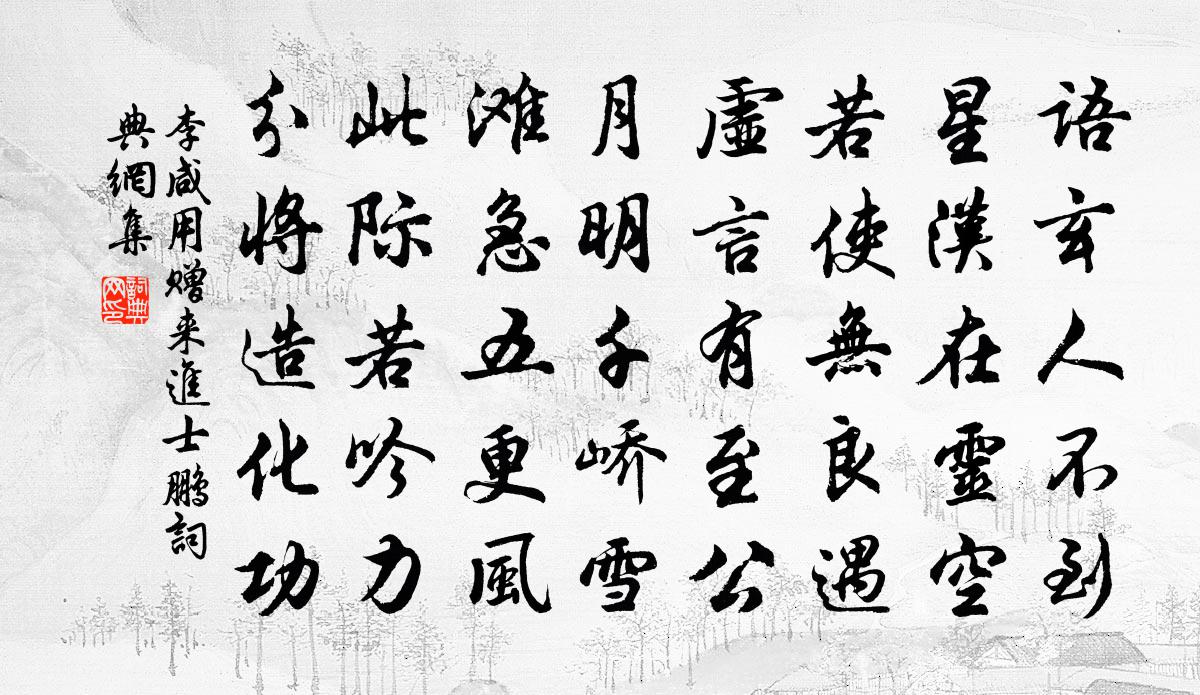 语玄人不到
星汉在靈空
若使無良遇
虛言有至公
月明千峤雪
滩急五更風
此际若吟力
分将造化功
李咸用赠来進士鵬詞
典網集
詞典
网印